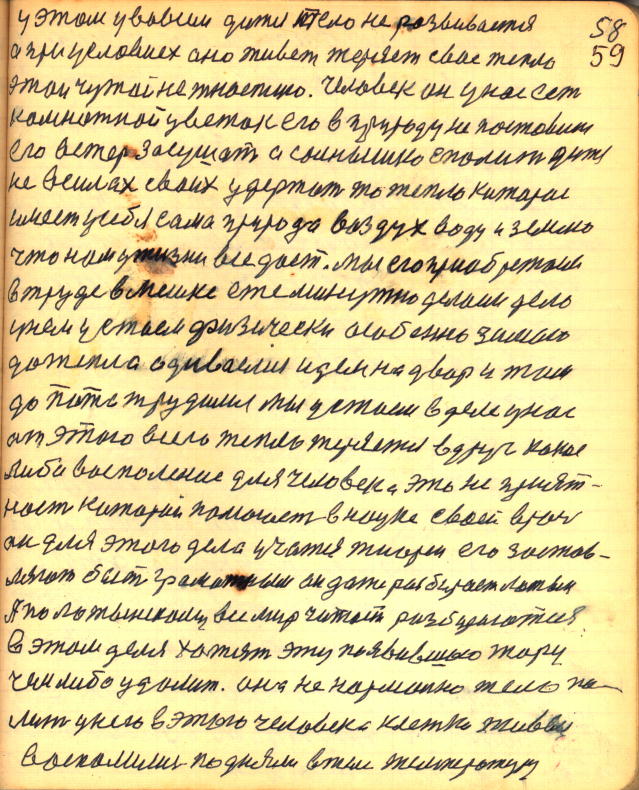 58
у этом увовсии дитя тело не розвивается
59
а при условиех оно живет теряет свое тепло
этой чужой не
человек он у нас ест
комнотной цветок его в природу не поставиш
его ветер засушат а сонышко спалит
не в силах своих удержат то тепло каторое
имеет у себя сама природа воздух воду и землю
что нам жизни все дает. мы его приобретаем
в труде в
делаем дело
устаем физически особенно зимою
до тепла одиваемся идем на двор и там
до пота трудимся мы устаем в деле у нас
от этого всего тепло теряется вдруг какое
либо восполение для человека это не прият-
ност каторай помогает в науке своей врач
он для этого дела учится
его застов-
ляют быт грамотным он даже разбирает латын
А по латынскому весмир читают разбираются
в этом деля хотят эту появившию жару
чем либо удолит. она не нормально тело по-
лит у него в этого человека клетки живеи
воспомилис подняли в теле температуру